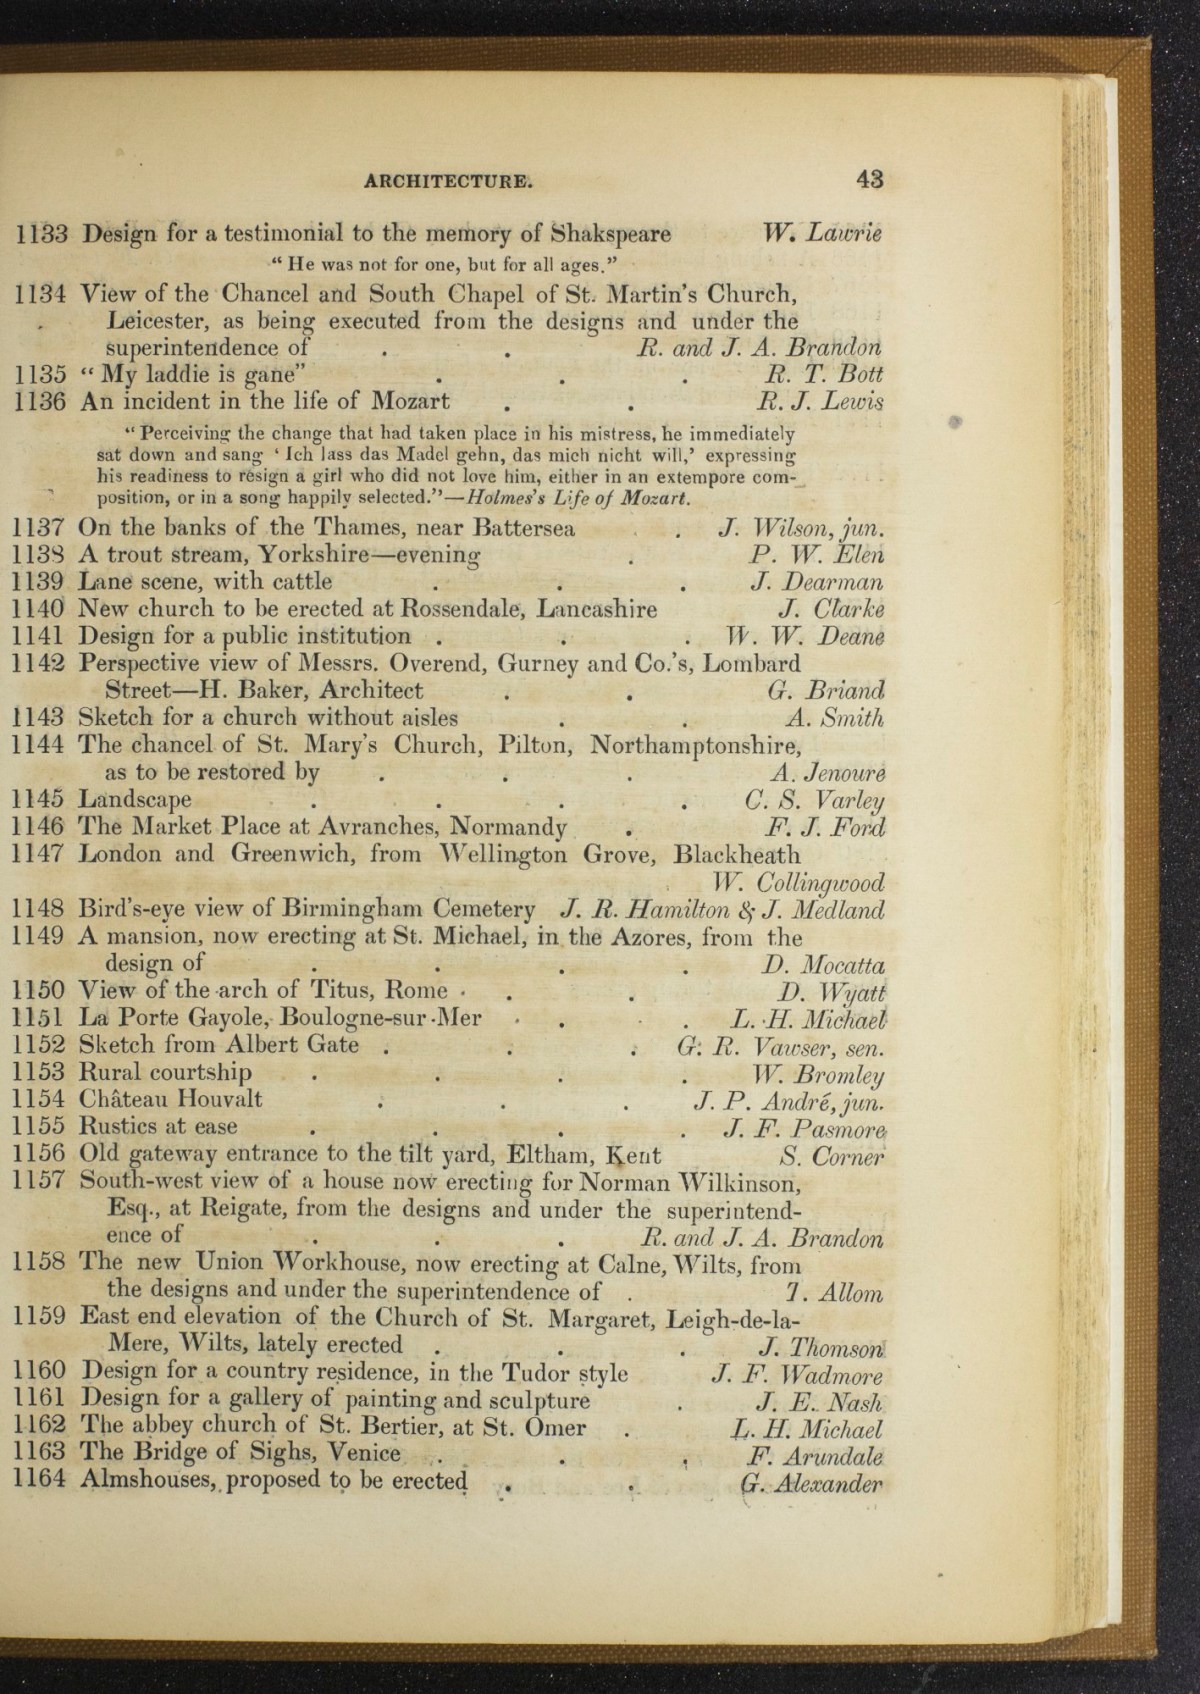 ARCHITECTURE. 43
1133 Design for a testimonial to the memory of Shakspeare W. Lawrie
“ He was not for one, but for all ages.”
1134 View of the Chancel and South Chapel of St. Martin's Church,
Leicester, as being executed from the designs and under the
superintendence of . . R. and J. A. Brandon
1135 “ My laddie is gane” . . . R. T. Bott
1136 An incident in the life of Mozart . . R. J. Lewis
“ Perceiving the change that had taken place in his mistress, he immediately
sat down and sang ‘ Ich lass das Madel gehn, das mich nicht will,’ expressing
his readiness to resign a girl who did not love him, either in an extempore com-
position, or in a song happily selected.”—Holmes's Life of Mozart.
1137 On the banks of the Thames, near Battersea . J. Wilson, jun.
1138 A trout stream, Yorkshire—evening . P. W. Elen
1139 Lane scene, with cattle . . . J. Dearman
1140 New church to be erected at Rossendale, Lancashire J. Clarke
1141 Design for a public institution . . . W. W. Deane
1142 Perspective view of Messrs. Overend, Gurney and Co.'s, Lombard
Street—H. Baker, Architect . . G. Briand
1143 Sketch for a church without aisles . . A. Smith
1144 The chancel of St. Mary's Church, Pilton, Northamptonshire,
as to be restored by . . . A. Jenoure
1145 Landscape . . . . C. S. Varley
1146 The Market Place at Avranches, Normandy . F. J. Ford
1147 London and Greenwich, from Wellington Grove, Blackheath
W. Collingwood
1148 Bird's-eye view of Birmingham Cemetery J. R. Hamilton & J. Medland
1149 A mansion, now erecting at St. Michael, in the Azores, from the
design of . . . . D. Mocatta
1150 View of the arch of Titus, Rome . . D. Wyatt
1151 La Porte Gayole, Boulogne-sur-Mer . . L. H. Michael
1152 Sketch from Albert Gate . . . G. R. Vawser, sen.
1153 Rural courtship . . . . W. Bromley
1154 Château Houvalt . . . J. P. André, jun.
1155 Rustics at ease . . . . J. F. Pasmore
1156 Old gateway entrance to the tilt yard, Eltham, Kent S. Corner
1157 South-west view of a house now erecting for Norman Wilkinson,
Esq., at Reigate, from the designs and under the superintend-
ence of . . . R. and J. A. Brandon
1158 The new Union Workhouse, now erecting at Calne, Wilts, from
the designs and under the superintendence of . T. Allom
1159 East end elevation of the Church of St. Margaret, Leigh-de-la-
Mere, Wilts, lately erected . . . J. Thomson
1160 Design for a country residence, in the Tudor style J. F. Wadmore
1161 Design for a gallery of painting and sculpture . J. E. Nash
1162 The abbey church of St. Bertier, at St. Omer . L. H. Michael
1163 The Bridge of Sighs, Venice . . . F. Arundale
1164 Almshouses, proposed to be erected . . G. Alexander